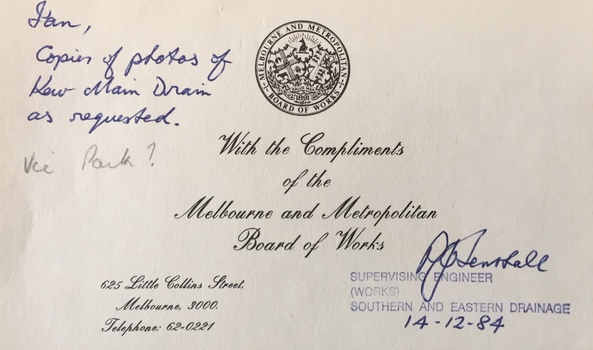 Ian,
Copies of photos of
Kew Main Drain
as requested.
Vic Park?
MELBOURNE AND METROPOLITAN
BOARD OF WORKS
1891
With the Compliments
of the
Melbourne and Metropolitan
Board of Works
625 Little Collins Street,
Melbourne, 3000.
Telephone: 62-0221
SUPERVISING ENGINEER
(WORKS)
SOUTHERN AND EASTERN DRAINAGE
14-12-84